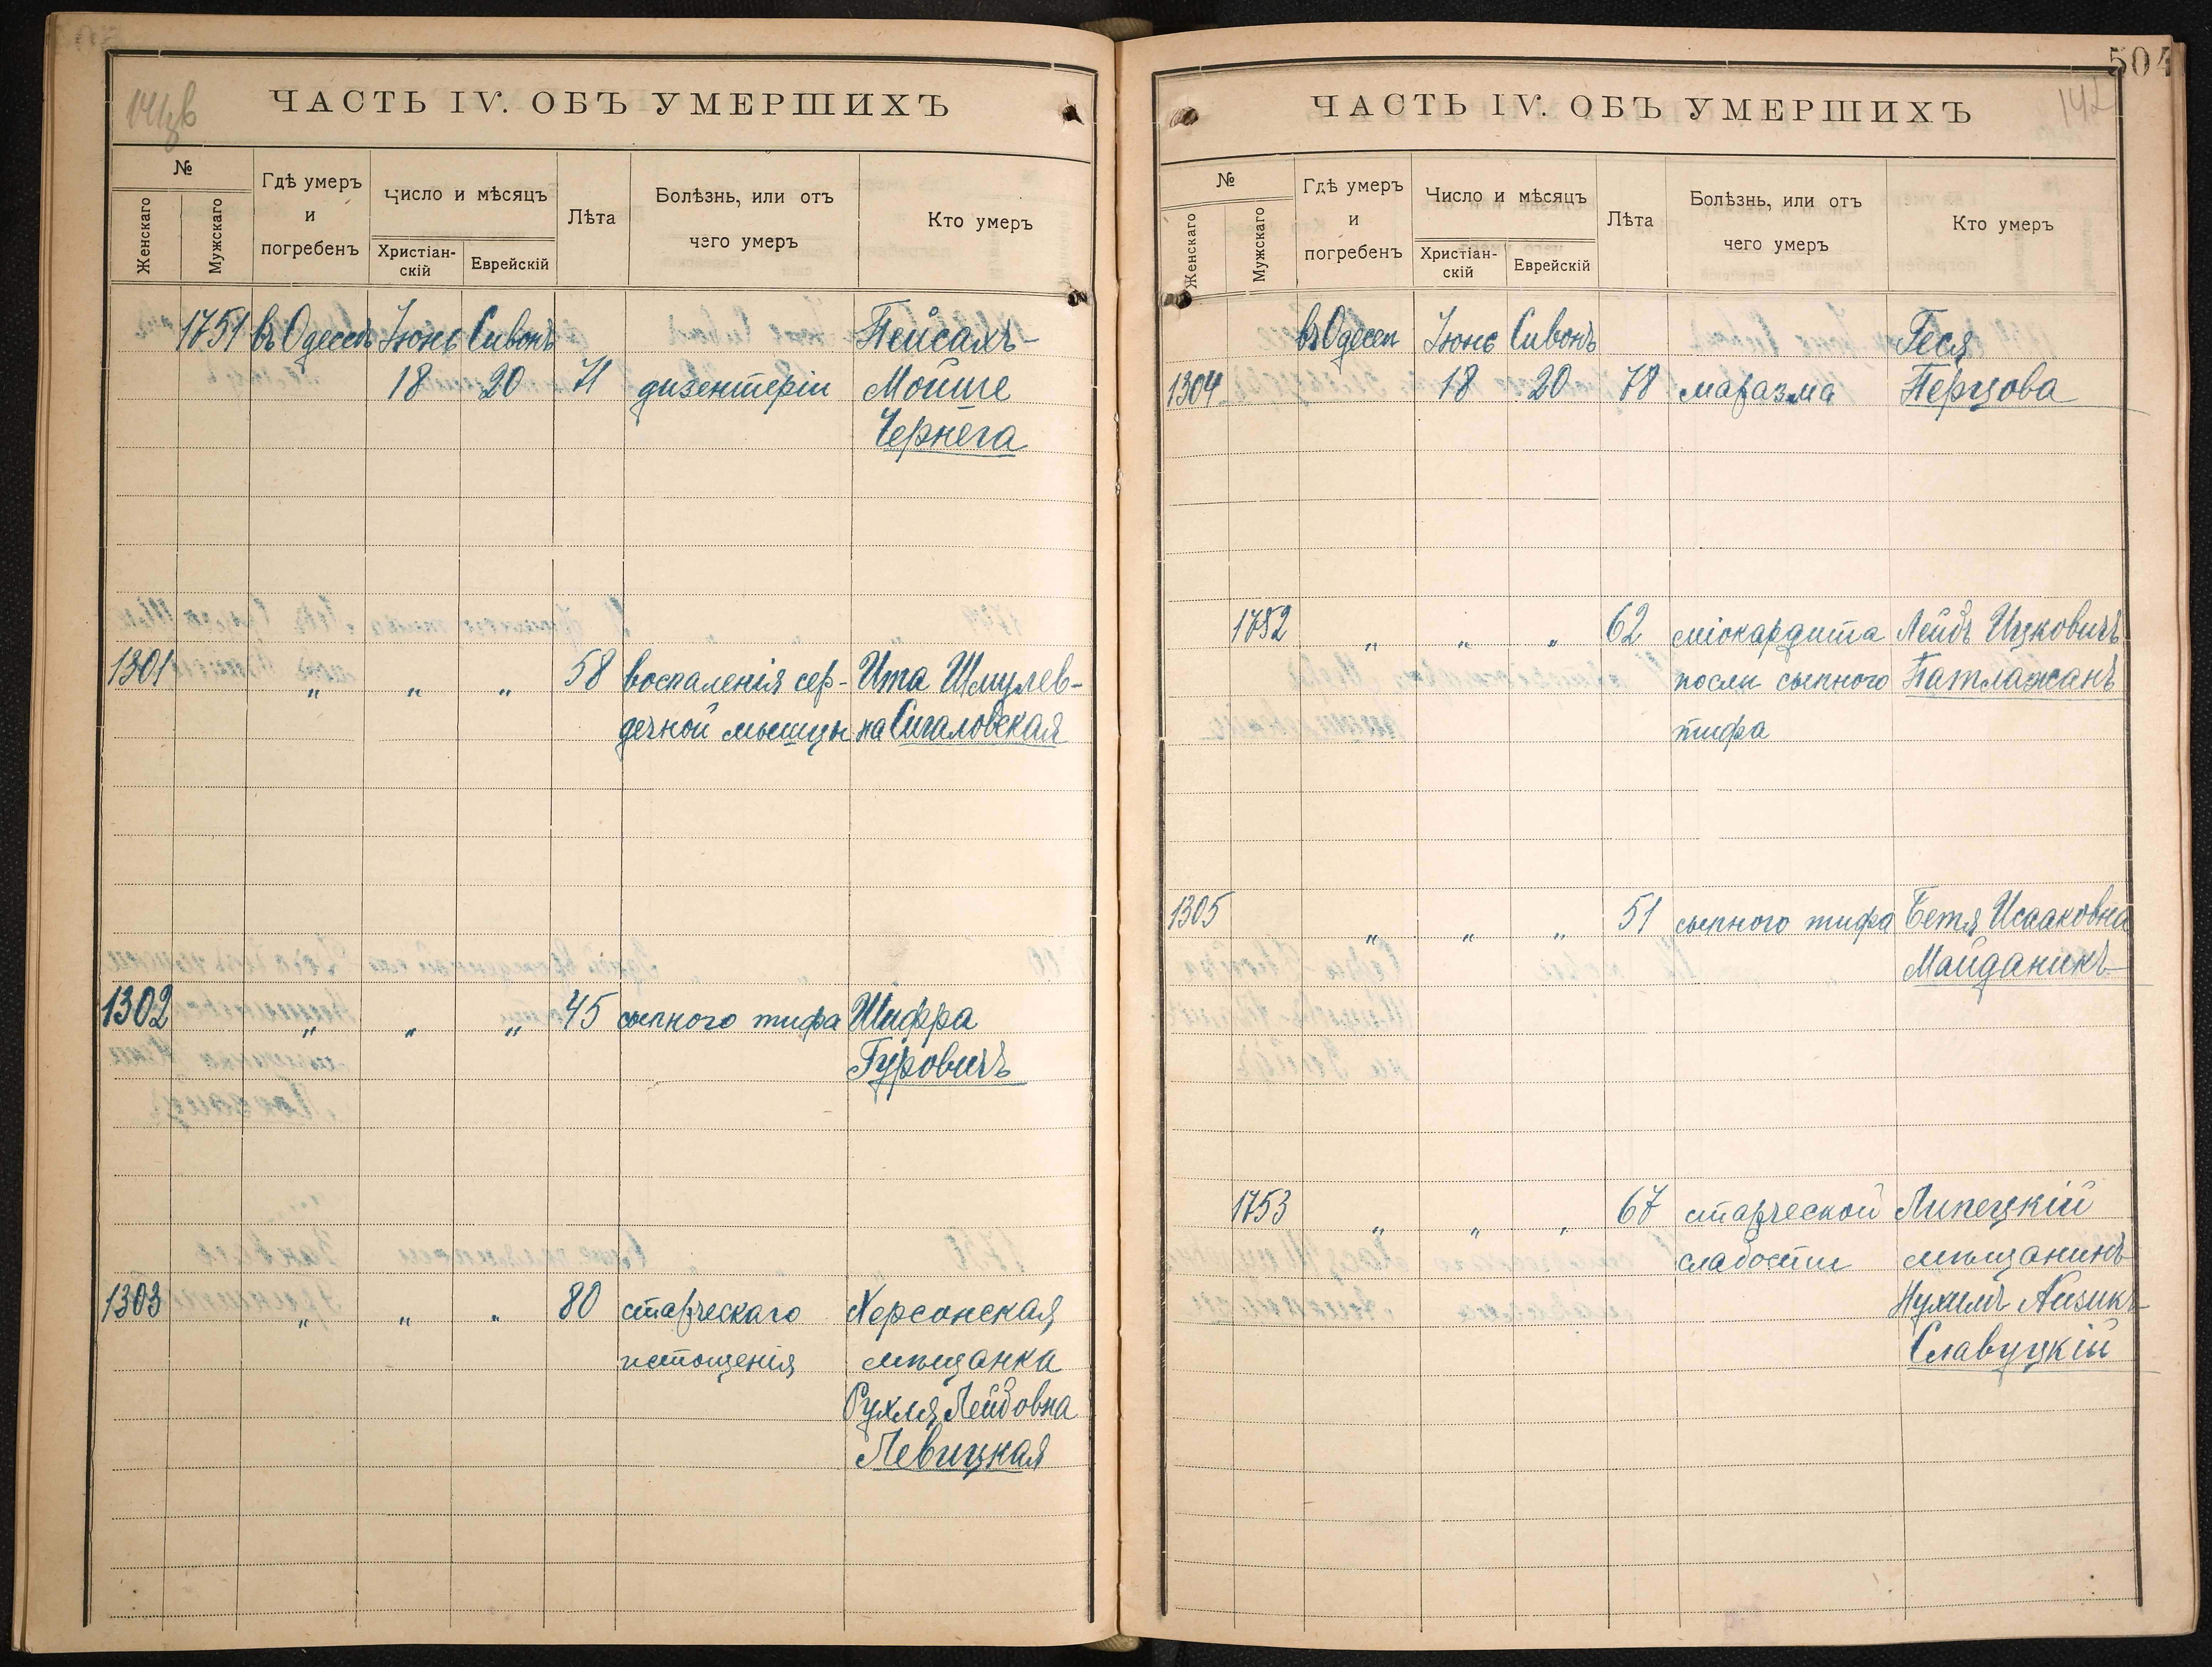 ЧАСТЬ IV. ОБЪ УМЕРШИХЪ
№
Женскаго
Мужскаго
Гдѣ умеръ
и
погребенъ
Число и мѣсяцъ
Христіан-
скій
Еврейскій
Лѣта
Болѣзнь, или отъ
чего умеръ
Кто умеръ
1751 въ Одессѣ Іюнь Сивонъ Пейсахъ-
18 20 71 дизентеріи Мойше
Чернега
1301 „ „ „ 58 воспаленія сер- Ита Шмулев-
дечной мышцы на Сигаловская
1302 „ „ „ 45 сыпного тифа Шифра
Гуровичъ
1303 „ „ „ 80 старческаго Херсонская
истощенія мѣщанка
Рухля Лейбовна
Левицкая
504
142
ЧАСТЬ IV. ОБЪ УМЕРШИХЪ
№
Женскаго
Мужскаго
Гдѣ умеръ
и
погребенъ
Число и мѣсяцъ
Христіан-
скій
Еврейскій
Лѣта
Болѣзнь, или отъ
чего умеръ
Кто умеръ
въ Одессѣ Іюнь Сивонъ Геся
1304 18 20 78 маразма Перцова
1752 „ „ „ 62 міокардита Лейбъ Ицковичъ
послѣ сыпного Патлажанъ
тифа
1305 „ „ „ 51 сыпного тифа Бетя Исааковна
Майданикъ
1753 „ „ „ 67 старческой Липецкій
слабости мѣщанинъ
Нухимъ Айзикъ
Славуцкій